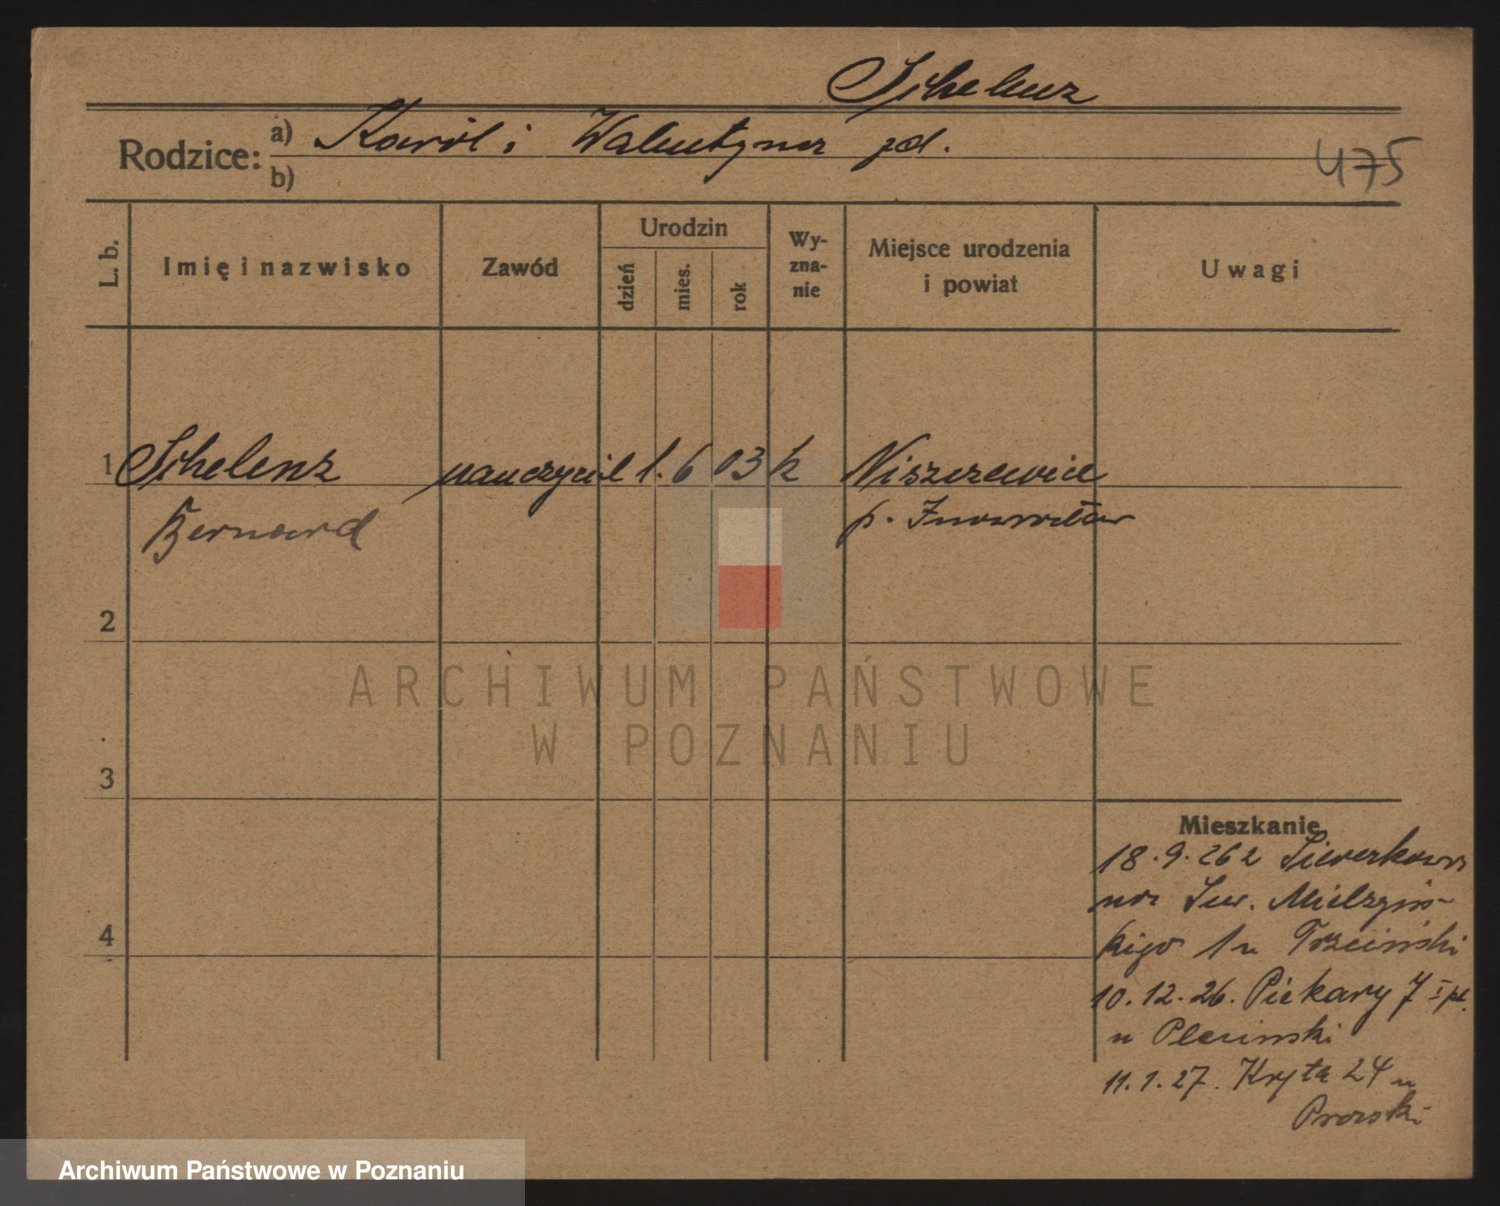 Schelenz
Rodzice: a) Karol i Walentyna zd.
b)
475
L. b.
Imię i nazwisko
Zawód
Urodzin
dzień
mies.
rok
Wy-
zna-
nie
Miejsce urodzenia
i powiat
Uwagi
1 Schelenz nauczyciel 1. 6 03 k Niszczewice
Bernard p. Inowrocław
2
ARCHIWUM PAŃSTWOWE
W POZNANIU
3
Mieszkanie
18.9.26 z
Mielżyń-
4
skiego 1 u Trzciński
10.12.26. Piekary 7 I pt.
u
11.1.27. Kręta 24 u
Archiwum Państwowe w Poznaniu